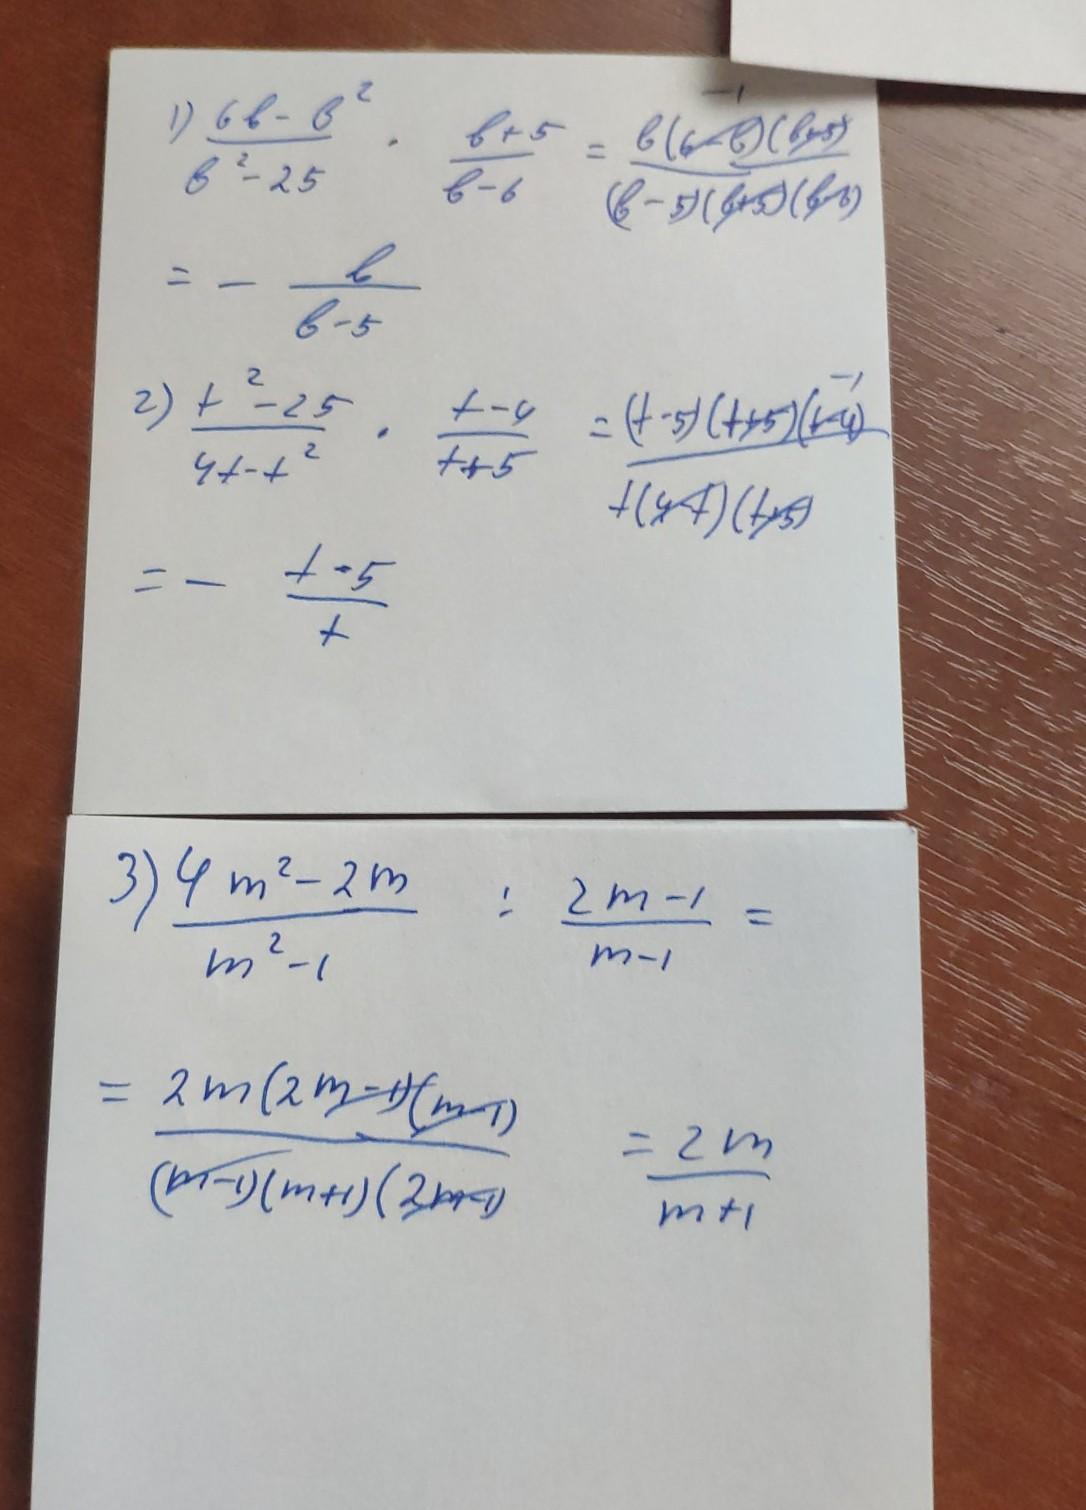 1) (6b - b²)/(b² - 25) · (b+5)/(b-6) = (b(6-b)(b+5))/((b-5)(b+5)(b-6)) -1
= - b/(b-5)
2) (t² - 25)/(4t - t²) · (t-4)/(t+5) = ((t-5)(t+5)(t-4))/(t(4-t)(t+5)) -1
= - (t-5)/t
3) (4m² - 2m)/(m² - 1) : (2m-1)/(m-1) =
= (2m(2m-1)(m-1))/((m-1)(m+1)(2m-1)) = 2m/(m+1)